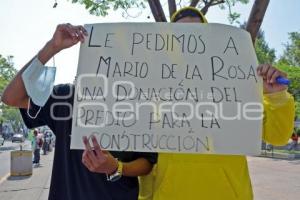 LE PEDIMOS A
MARIO DE LA ROSA
UNA DONACIÓN DEL
PREDIO PARA LA
CONSTRUCCIÓN
agencia
enfoque